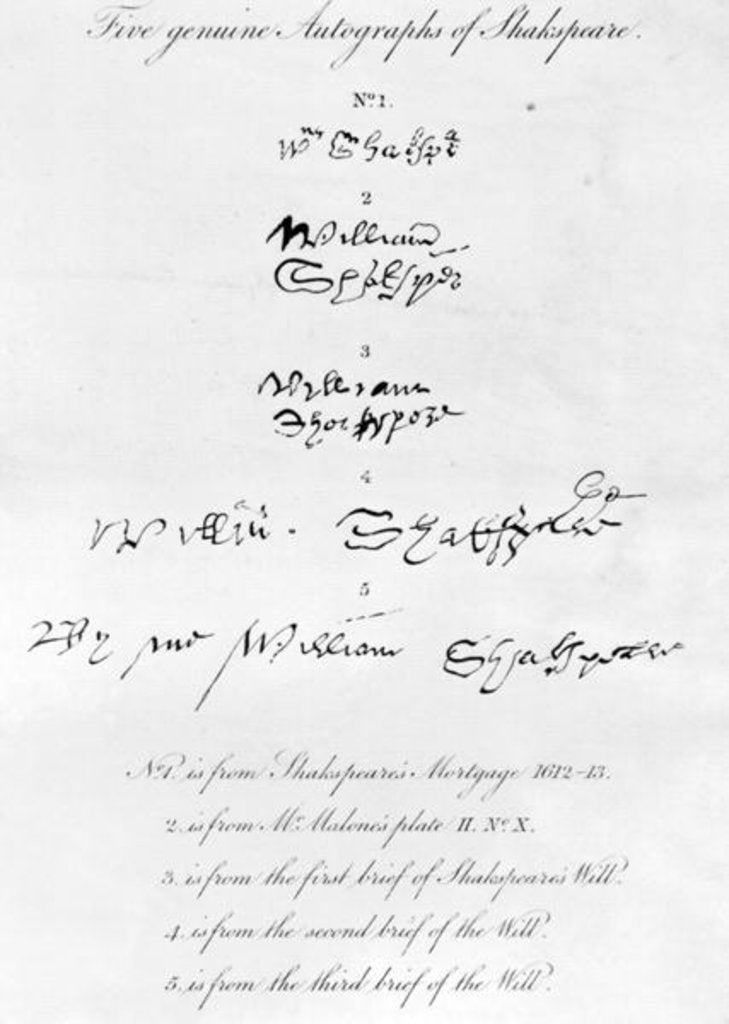 Five genuine Autographs of Shakspeare.
No. 1.
Wm Shakspe
2
William
Shaksper
3
William
Shakspere
4
Willm. Shakspere
5
By me William Shakspeare
No. 1. is from Shakspeare's Mortgage 1612-13.
2. is from Mr. Malone's plate II. No. X.
3. is from the first brief of Shakspeare's Will.
4. is from the second brief of the Will.
5. is from the third brief of the Will.